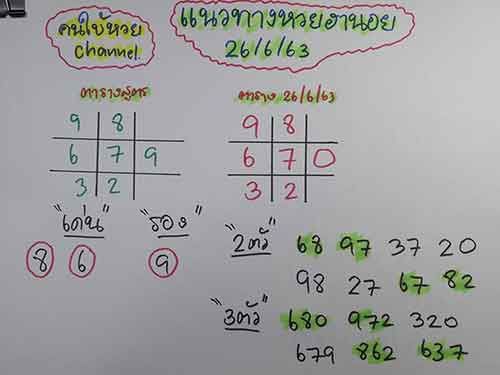 คนใบ้หวย
Channel
แนวทางหวยฮานอย
26/6/63
ตารางสูตร
9 8
6 7 9
3 2
ตาราง 26/6/63
9 8
6 7 0
3 2
"เด่น" "รอง"
8 6 9
"2ตัว" 68 97 37 20
98 27 67 82
"3ตัว" 680 972 320
679 862 637